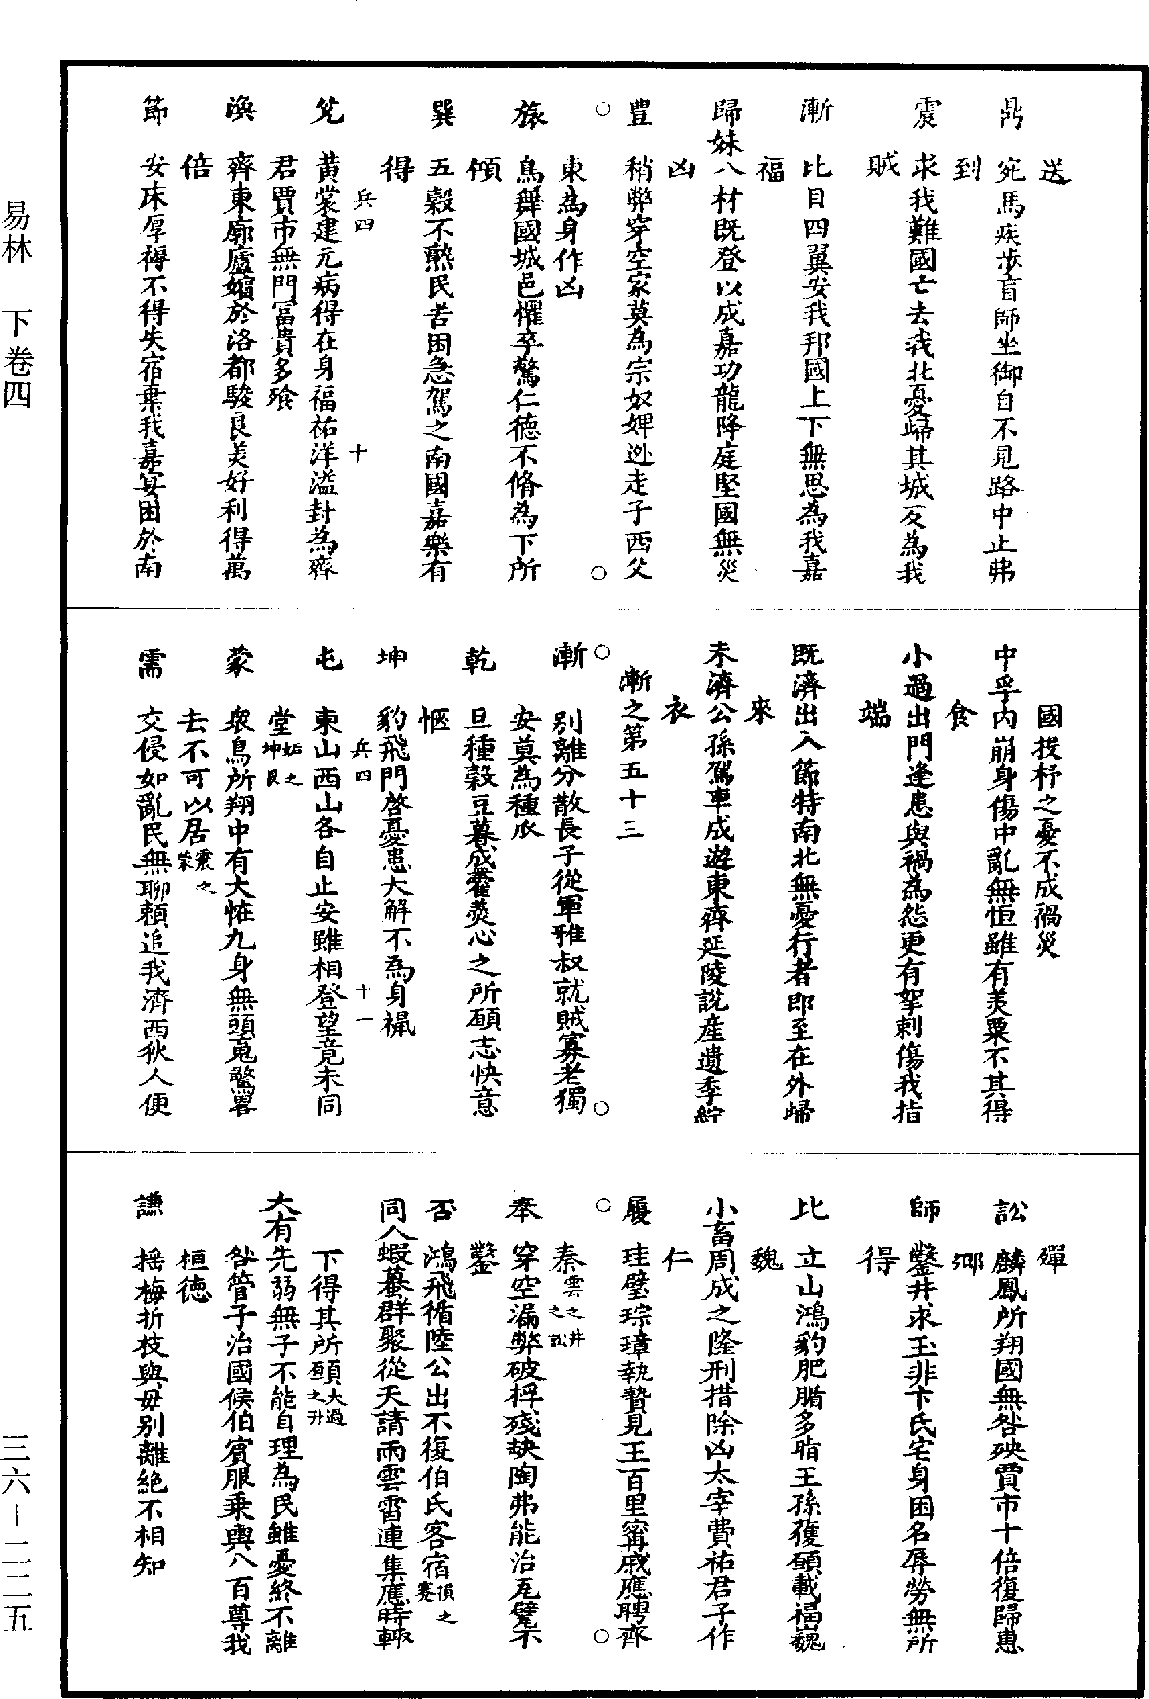 易林 下卷四
三六－二二五
送
鼎 宛馬疾步盲師坐御自不見路中止弗
到
震 求我難國亡去我北憂歸其城反為我
賊
漸 比目四翼安我邦國上下無思為我嘉
福
歸妹八材既登以成嘉功龍降庭堅國無災
凶
豊 稍弊穿空家莫為宗奴婢逊走子西父
東為身作凶
旅 鳥舞國城邑懼卒驚仁德不脩為下所
傾
巽 五穀不熟民苦困急駕之南國嘉樂有
得
兵四 十
兌 黃裳建元病得在身福祐洋溢封為齊
君賈市無門冨貴多飱
渙 齊東廓廬嬪於洛都駿良美好利得萬
倍
節 安床厚褥不得失宿棄我嘉宴困於南
國投杼之憂不成禍災
中孚內崩身傷中亂無恒雖有美粟不其得
食
小過出門逢患與禍為怨更有挐刺傷我指
端
既濟出入節特南北無憂行者即至在外歸
來
未濟公孫駕車成遊東齊延陵說產遺季紵
衣
漸之第五十三
漸 別離分散長子從軍稚叔就賊寡老獨
安莫為種瓜
乾 旦種穀豆暮成藿羹心之所願志快意
愜
坤 豹飛門啓憂患大解不為身禍
兵四 十一
屯 東山西山各自止安雖相登望竟未同
堂姤之坤艮
蒙 衆鳥所翔中有大怪九身無頭䰟驚魄
去不可以居震之蒙
需 交侵如亂民無聊賴追我濟西狄人便
殫
訟 麟鳳所翔國無咎殃賈市十倍復歸惠
鄉
師 鑿井求玉非卞氏宅身困名辱勞無所
得
比 立山鴻豹肥腯多脂王孫獲願載福巍
魏
小畜周成之隆刑措除凶太宰費祐君子作
仁
履 珪璧琮璋執贄見王百里甯戚應聘齊
秦雲之井之訟
泰 穿空漏弊破桴殘缺陶弗能治瓦甓不
鑿
否 鴻飛循陸公出不復伯氏客宿損之蹇
同人蝦蟇群聚從天請雨雲雷連集應時輙
下得其所願大過之升
大有先弱無子不能自理為民雖憂終不離
咎管子治國侯伯賓服乘輿八百尊我
桓德
謙 揺梅折枝與毋別離絶不相知